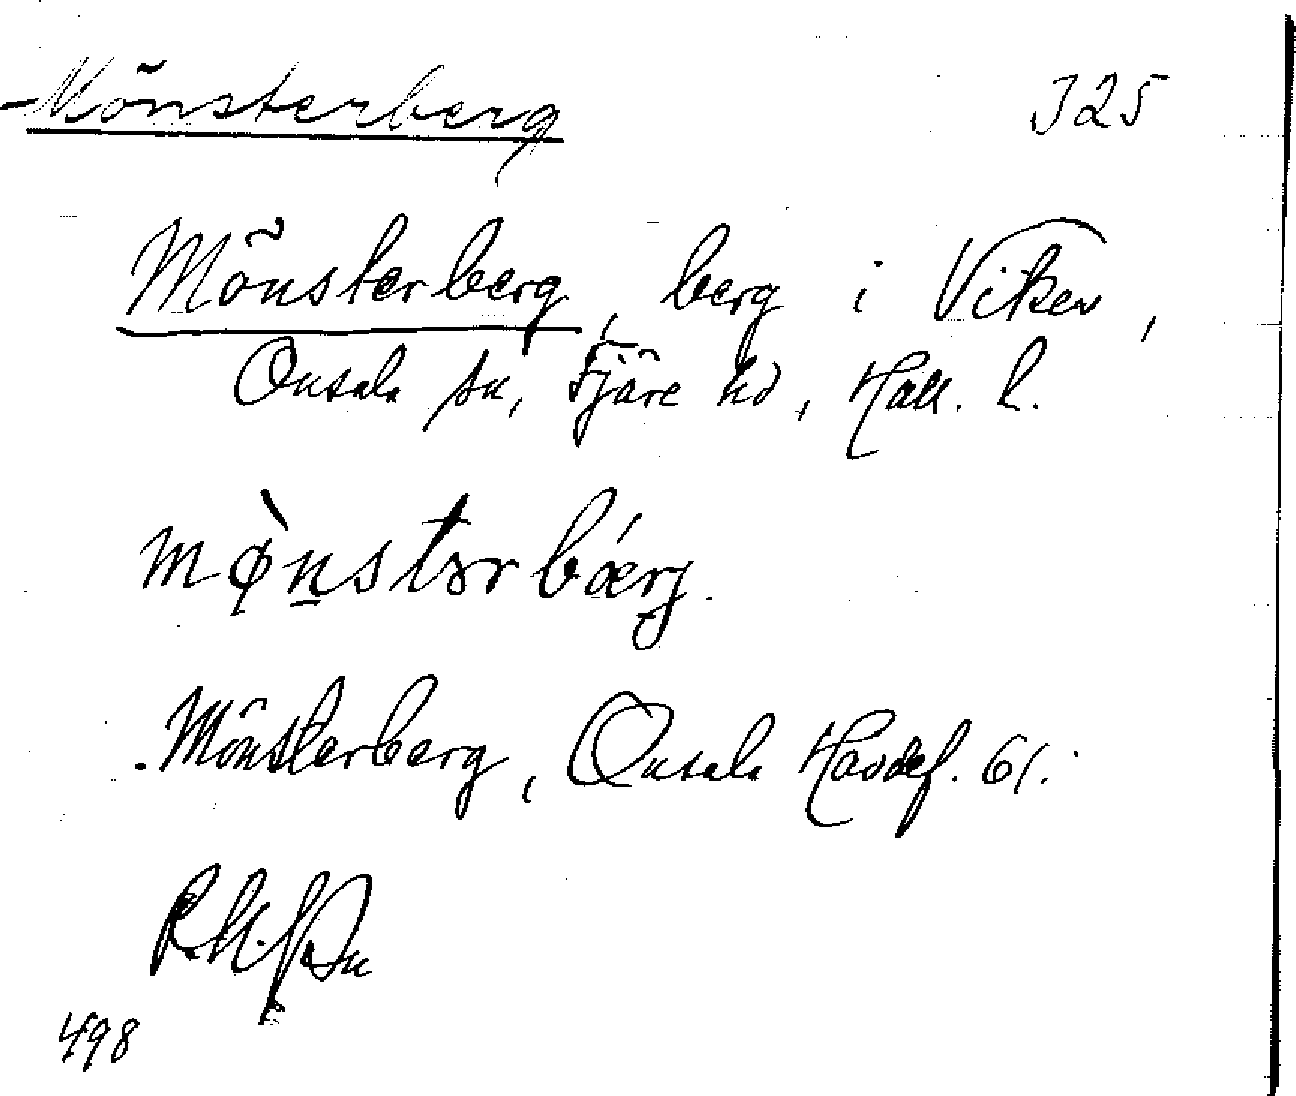 Mönsterberg 325
Mönsterberg, berg i Viken,
Onsala sn, Fjäre hd, Hall. l.
mø̀n̠stərbǽrj.
Mönsterberg, Onsala Havdef. 61.
498